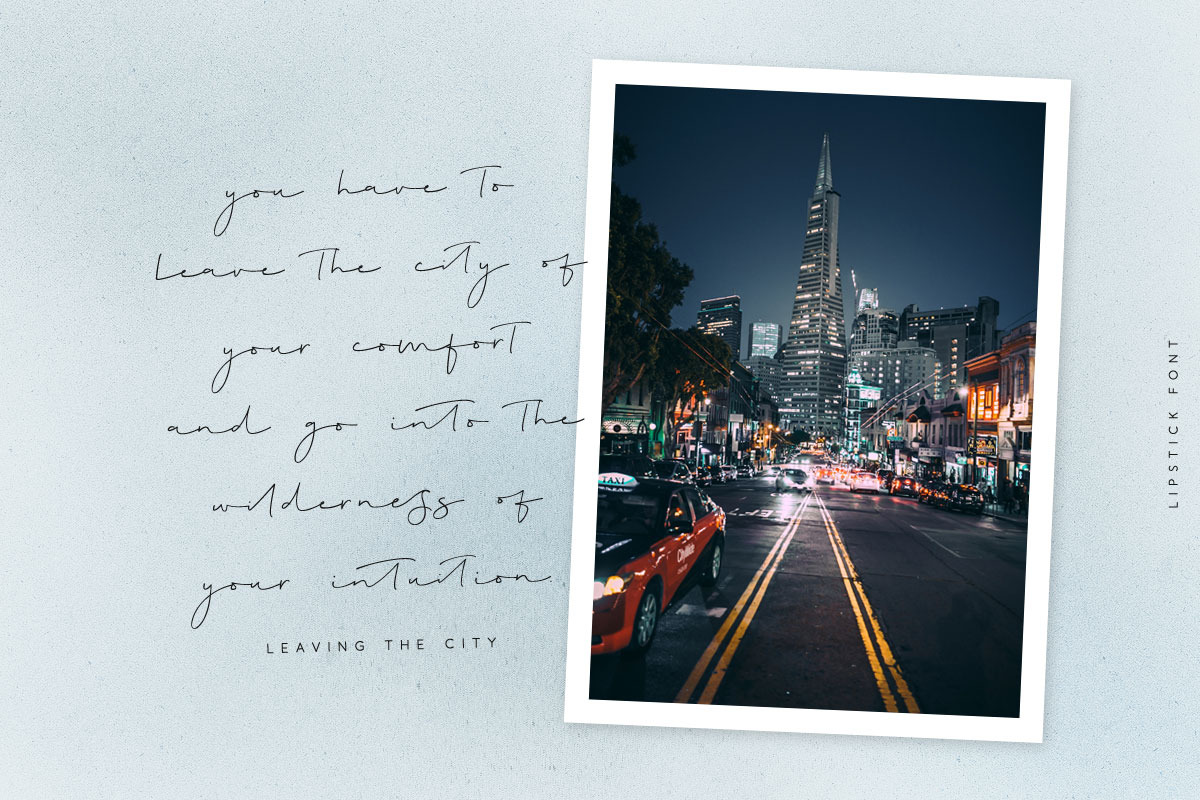 you have to
Leave the city of
your comfort
and go into the
wilderness of
your intuition.
LEAVING THE CITY
TAXI
CityWide
LIPSTICK FONT